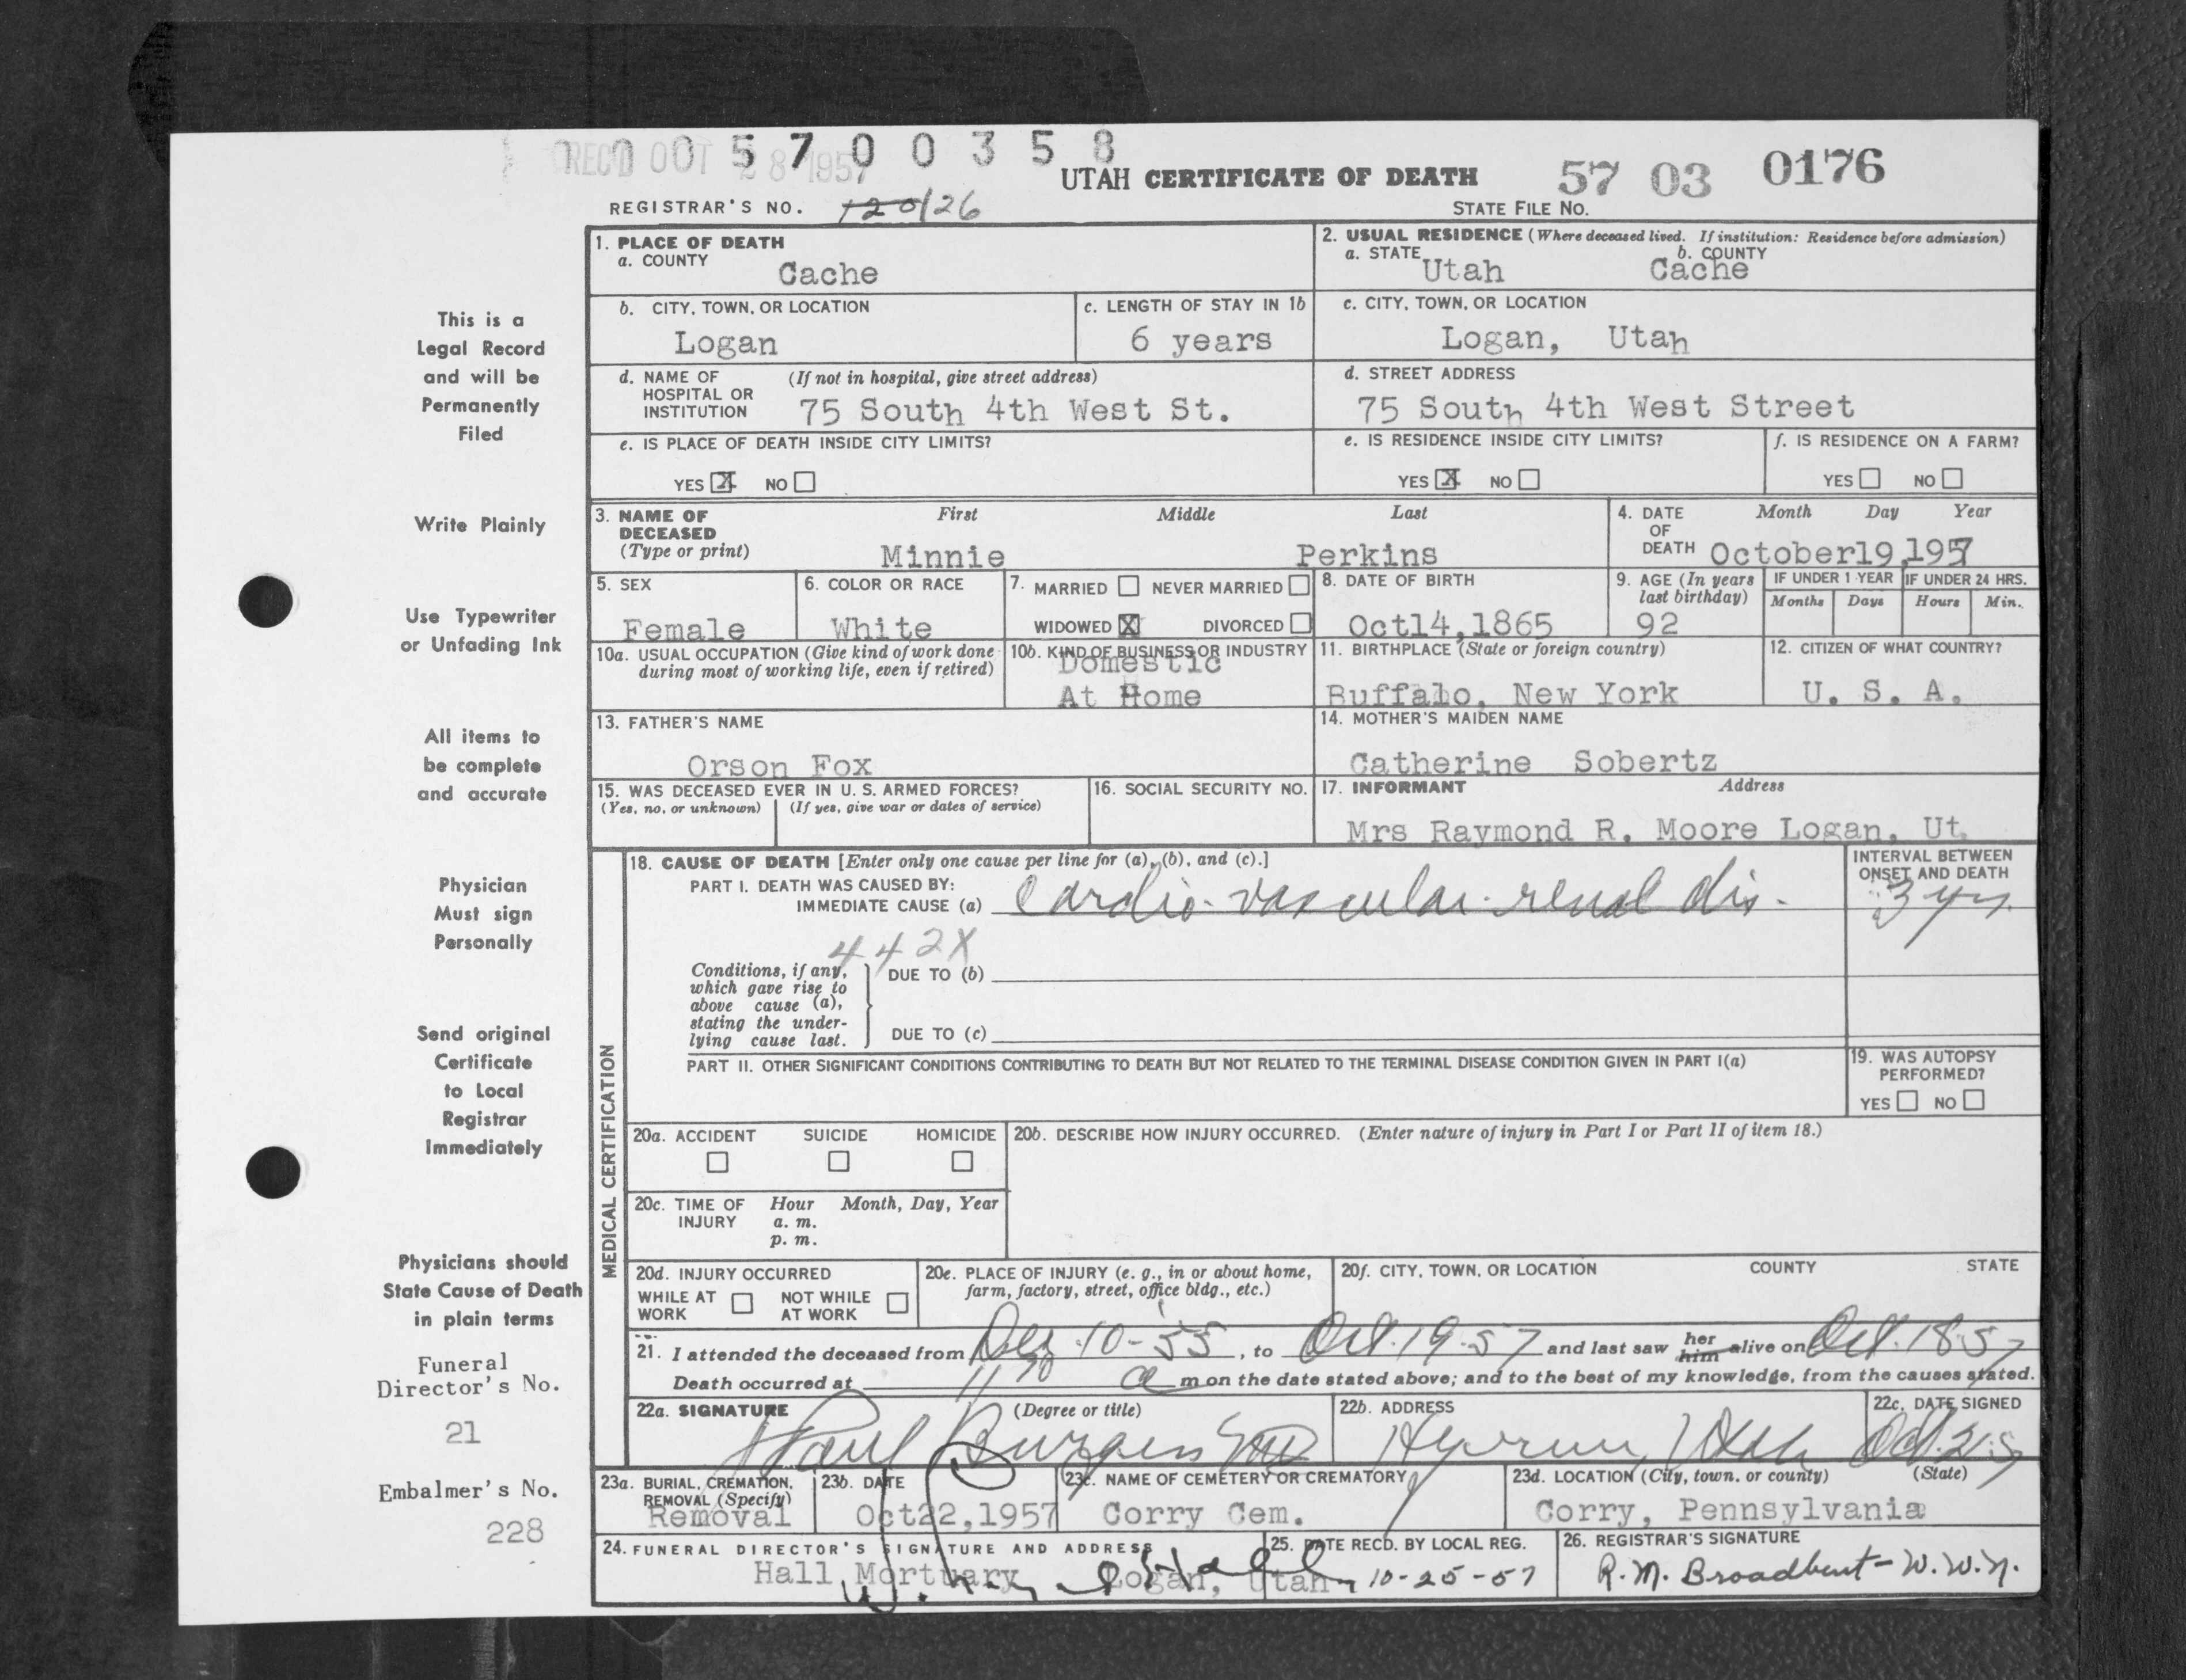 REC'D OCT 28 1957
0 0 5 7 0 0 3 5 8
UTAH CERTIFICATE OF DEATH
57 03 0176
REGISTRAR'S NO. 120/26
STATE FILE No.
This is a
Legal Record
and will be
Permanently
Filed
Write Plainly
Use Typewriter
or Unfading Ink
All items to
be complete
and accurate
Physician
Must sign
Personally
Send original
Certificate
to Local
Registrar
Immediately
Physicians should
State Cause of Death
in plain terms
Funeral
Director's No.
21
Embalmer's No.
228
1. PLACE OF DEATH
a. COUNTY
Cache
2. USUAL RESIDENCE (Where deceased lived. If institution: Residence before admission)
a. STATE Utah b. COUNTY Cache
b. CITY, TOWN, OR LOCATION
Logan
c. LENGTH OF STAY IN 1b
6 years
c. CITY, TOWN, OR LOCATION
Logan, Utah
d. NAME OF HOSPITAL OR INSTITUTION (If not in hospital, give street address)
75 South 4th West St.
d. STREET ADDRESS
75 South 4th West Street
e. IS PLACE OF DEATH INSIDE CITY LIMITS?
YES X NO
e. IS RESIDENCE INSIDE CITY LIMITS?
YES X NO
f. IS RESIDENCE ON A FARM?
YES NO
3. NAME OF DECEASED (Type or print)
First Middle Last
Minnie Perkins
4. DATE OF DEATH Month Day Year
October19,1957
5. SEX
Female
6. COLOR OR RACE
White
7. MARRIED NEVER MARRIED
WIDOWED X DIVORCED
8. DATE OF BIRTH
Oct14,1865
9. AGE (In years last birthday)
92
IF UNDER 1 YEAR
Months Days
IF UNDER 24 HRS.
Hours Min.
10a. USUAL OCCUPATION (Give kind of work done during most of working life, even if retired)
10b. KIND OF BUSINESS OR INDUSTRY
Domestic
At Home
11. BIRTHPLACE (State or foreign country)
Buffalo, New York
12. CITIZEN OF WHAT COUNTRY?
U. S. A.
13. FATHER'S NAME
Orson Fox
14. MOTHER'S MAIDEN NAME
Catherine Sobertz
15. WAS DECEASED EVER IN U. S. ARMED FORCES?
(Yes, no, or unknown) (If yes, give war or dates of service)
16. SOCIAL SECURITY NO.
17. INFORMANT Address
Mrs Raymond R. Moore Logan, Ut.
MEDICAL CERTIFICATION
18. CAUSE OF DEATH [Enter only one cause per line for (a), (b), and (c).]
PART I. DEATH WAS CAUSED BY:
IMMEDIATE CAUSE (a) Cardio-vascular-renal dis.
INTERVAL BETWEEN ONSET AND DEATH
3 yrs.
442X
Conditions, if any, which gave rise to above cause (a), stating the underlying cause last.
DUE TO (b)
DUE TO (c)
PART II. OTHER SIGNIFICANT CONDITIONS CONTRIBUTING TO DEATH BUT NOT RELATED TO THE TERMINAL DISEASE CONDITION GIVEN IN PART I(a)
19. WAS AUTOPSY PERFORMED?
YES NO
20a. ACCIDENT SUICIDE HOMICIDE
20b. DESCRIBE HOW INJURY OCCURRED. (Enter nature of injury in Part I or Part II of item 18.)
20c. TIME OF INJURY Hour Month, Day, Year
a. m.
p. m.
20d. INJURY OCCURRED
WHILE AT WORK NOT WHILE AT WORK
20e. PLACE OF INJURY (e. g., in or about home, farm, factory, street, office bldg., etc.)
20f. CITY, TOWN, OR LOCATION COUNTY STATE
21. I attended the deceased from Dec 10-55, to Oct. 19-57 and last saw her him alive on Oct. 18 57
Death occurred at 11 a m on the date stated above; and to the best of my knowledge, from the causes stated.
22a. SIGNATURE (Degree or title)
Paul Burgess MD
22b. ADDRESS
Hyrum, Utah
22c. DATE SIGNED
Oct.
23a. BURIAL, CREMATION, REMOVAL (Specify)
Removal
23b. DATE
Oct22,1957
23c. NAME OF CEMETERY OR CREMATORY
Corry Cem.
23d. LOCATION (City, town, or county) (State)
Corry, Pennsylvania
24. FUNERAL DIRECTOR'S SIGNATURE AND ADDRESS
Hall Mortuary Logan, Utah
25. DATE RECD. BY LOCAL REG.
10-25-57
26. REGISTRAR'S SIGNATURE
R.M. Broadbent-W.W.N.